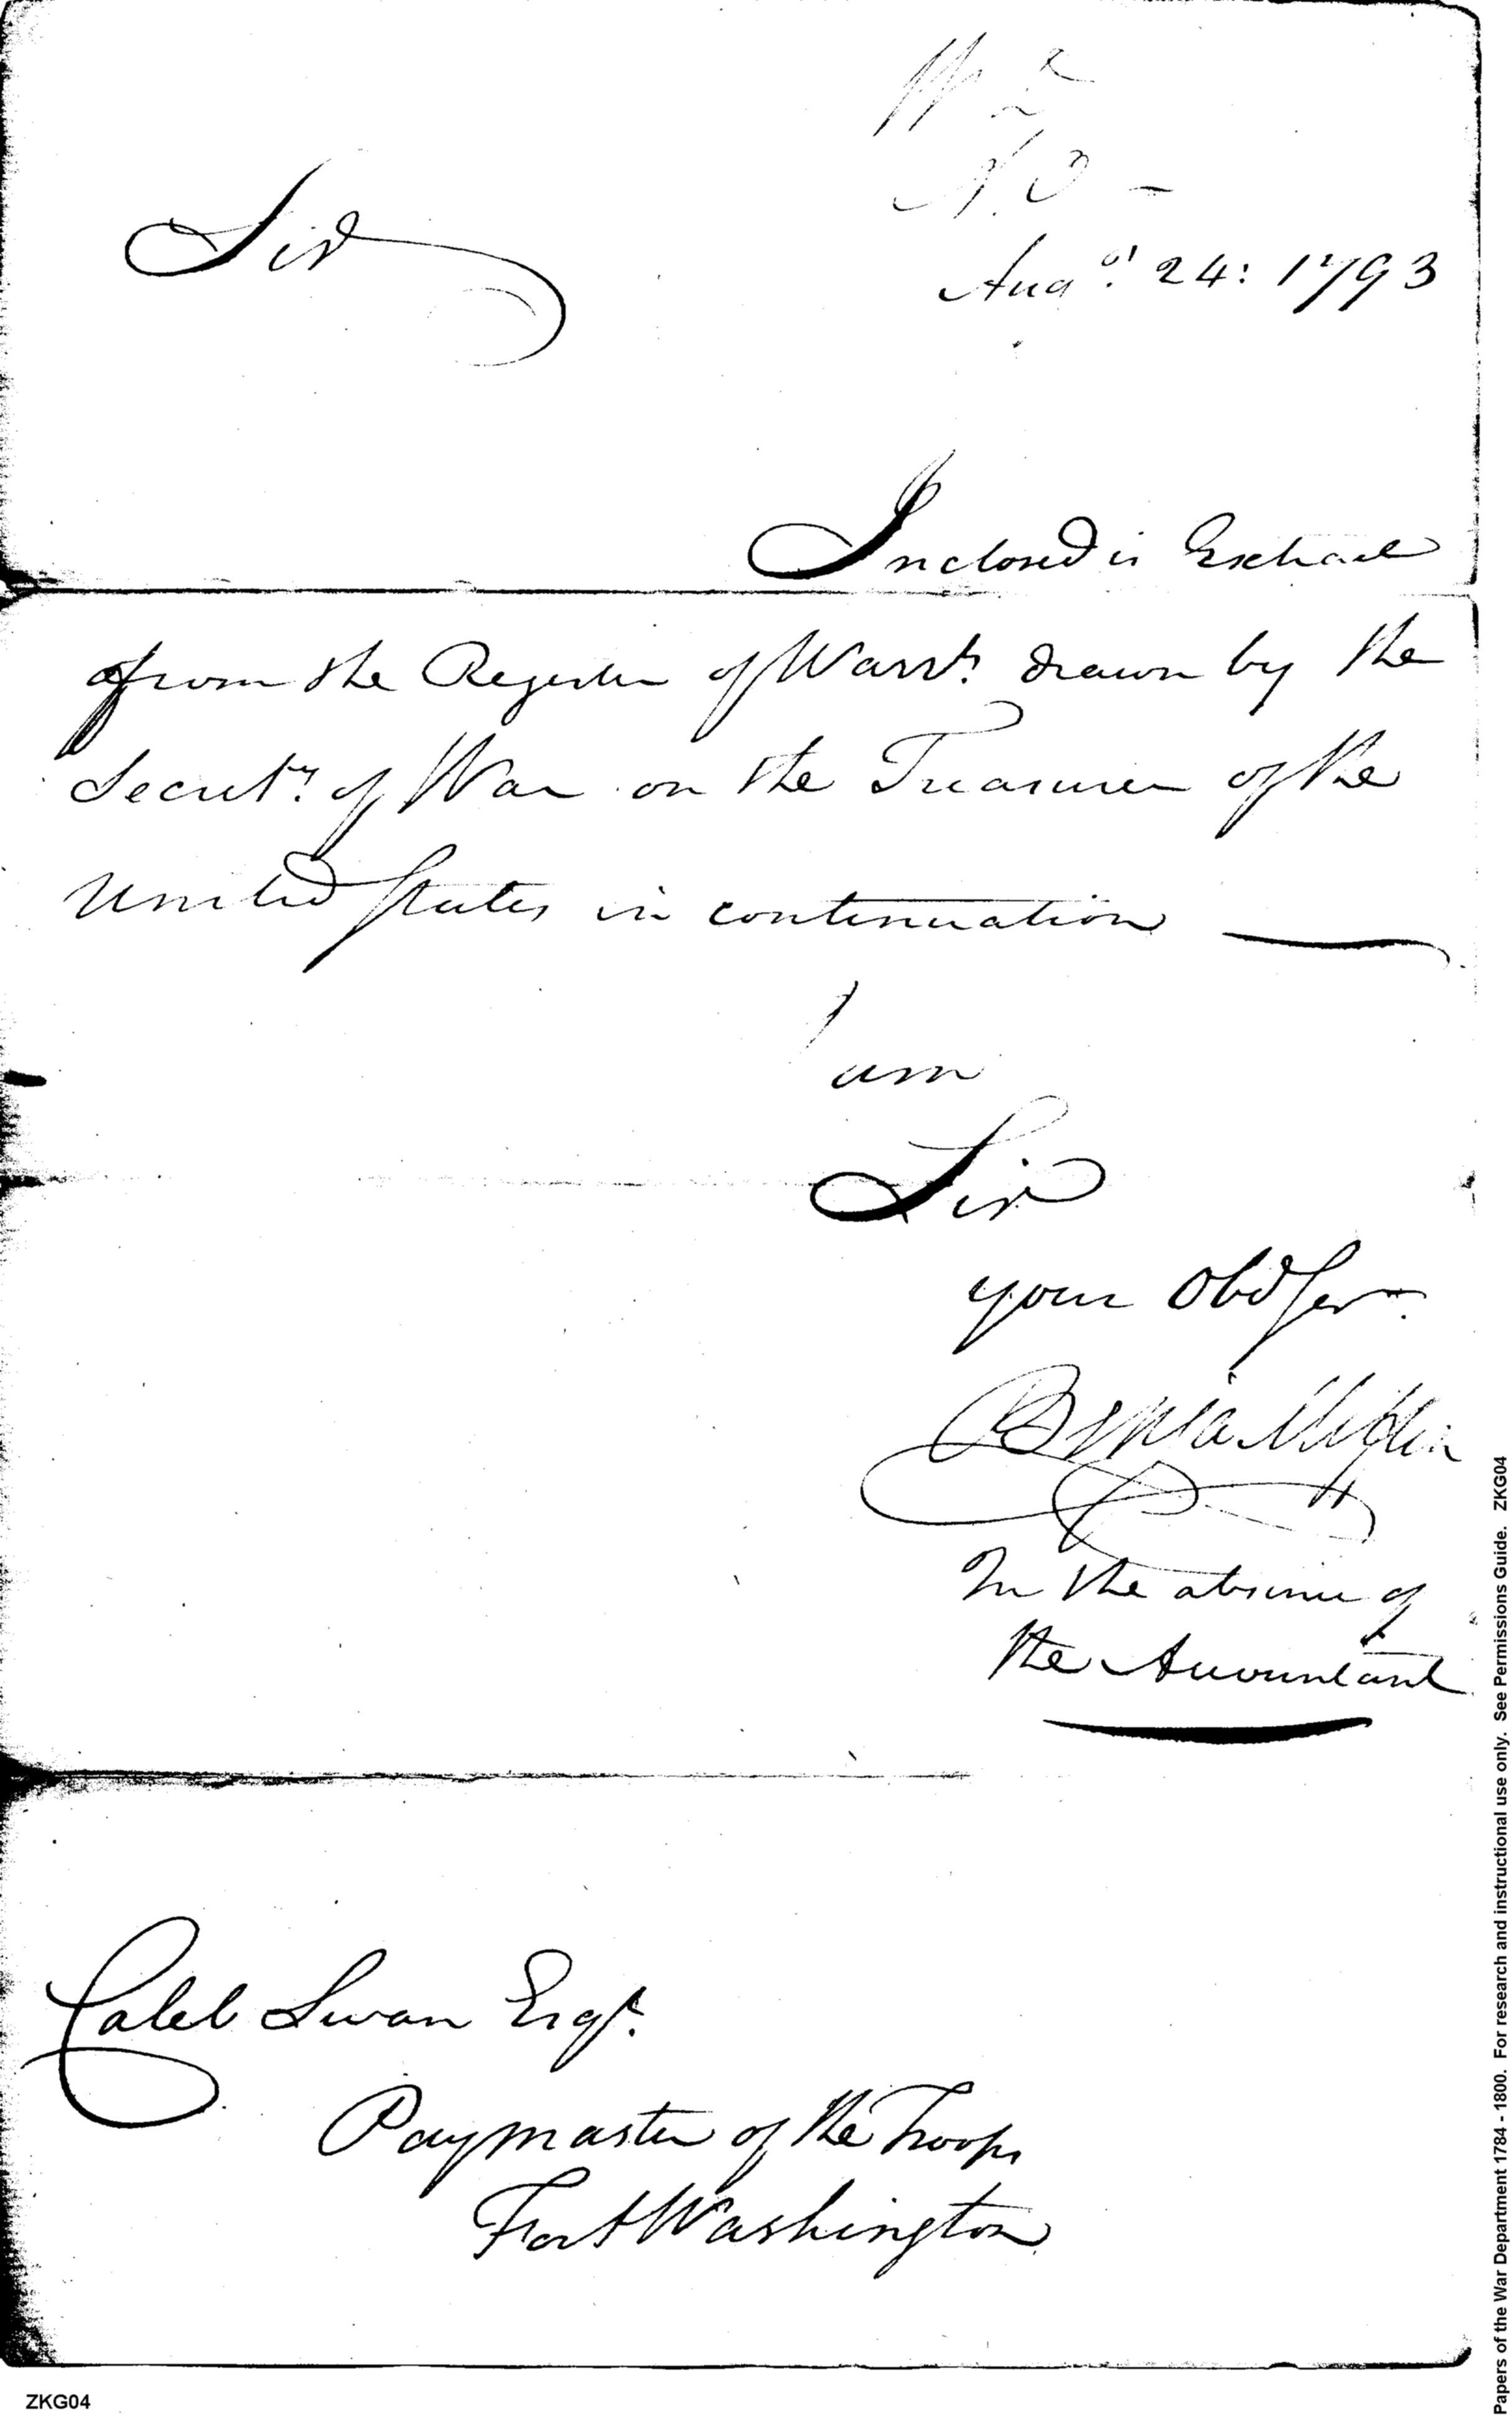 W D
A. O –
Sir
Augst. 24: 1793
Inclosed is Extract
from the Register of Warrts. drawn by the
Secrety. of War on the Treasurer of the
United States in continuation
I
am
Sir
your Obd Servt.
Benja Mifflin
In the absence of
the Accountant
Caleb Swan Esqr.
Paymaster of the Troops
Fort Washington
ZKG04
Papers of the War Department 1784 - 1800. For research and instructional use only. See Permissions Guide. ZKG04